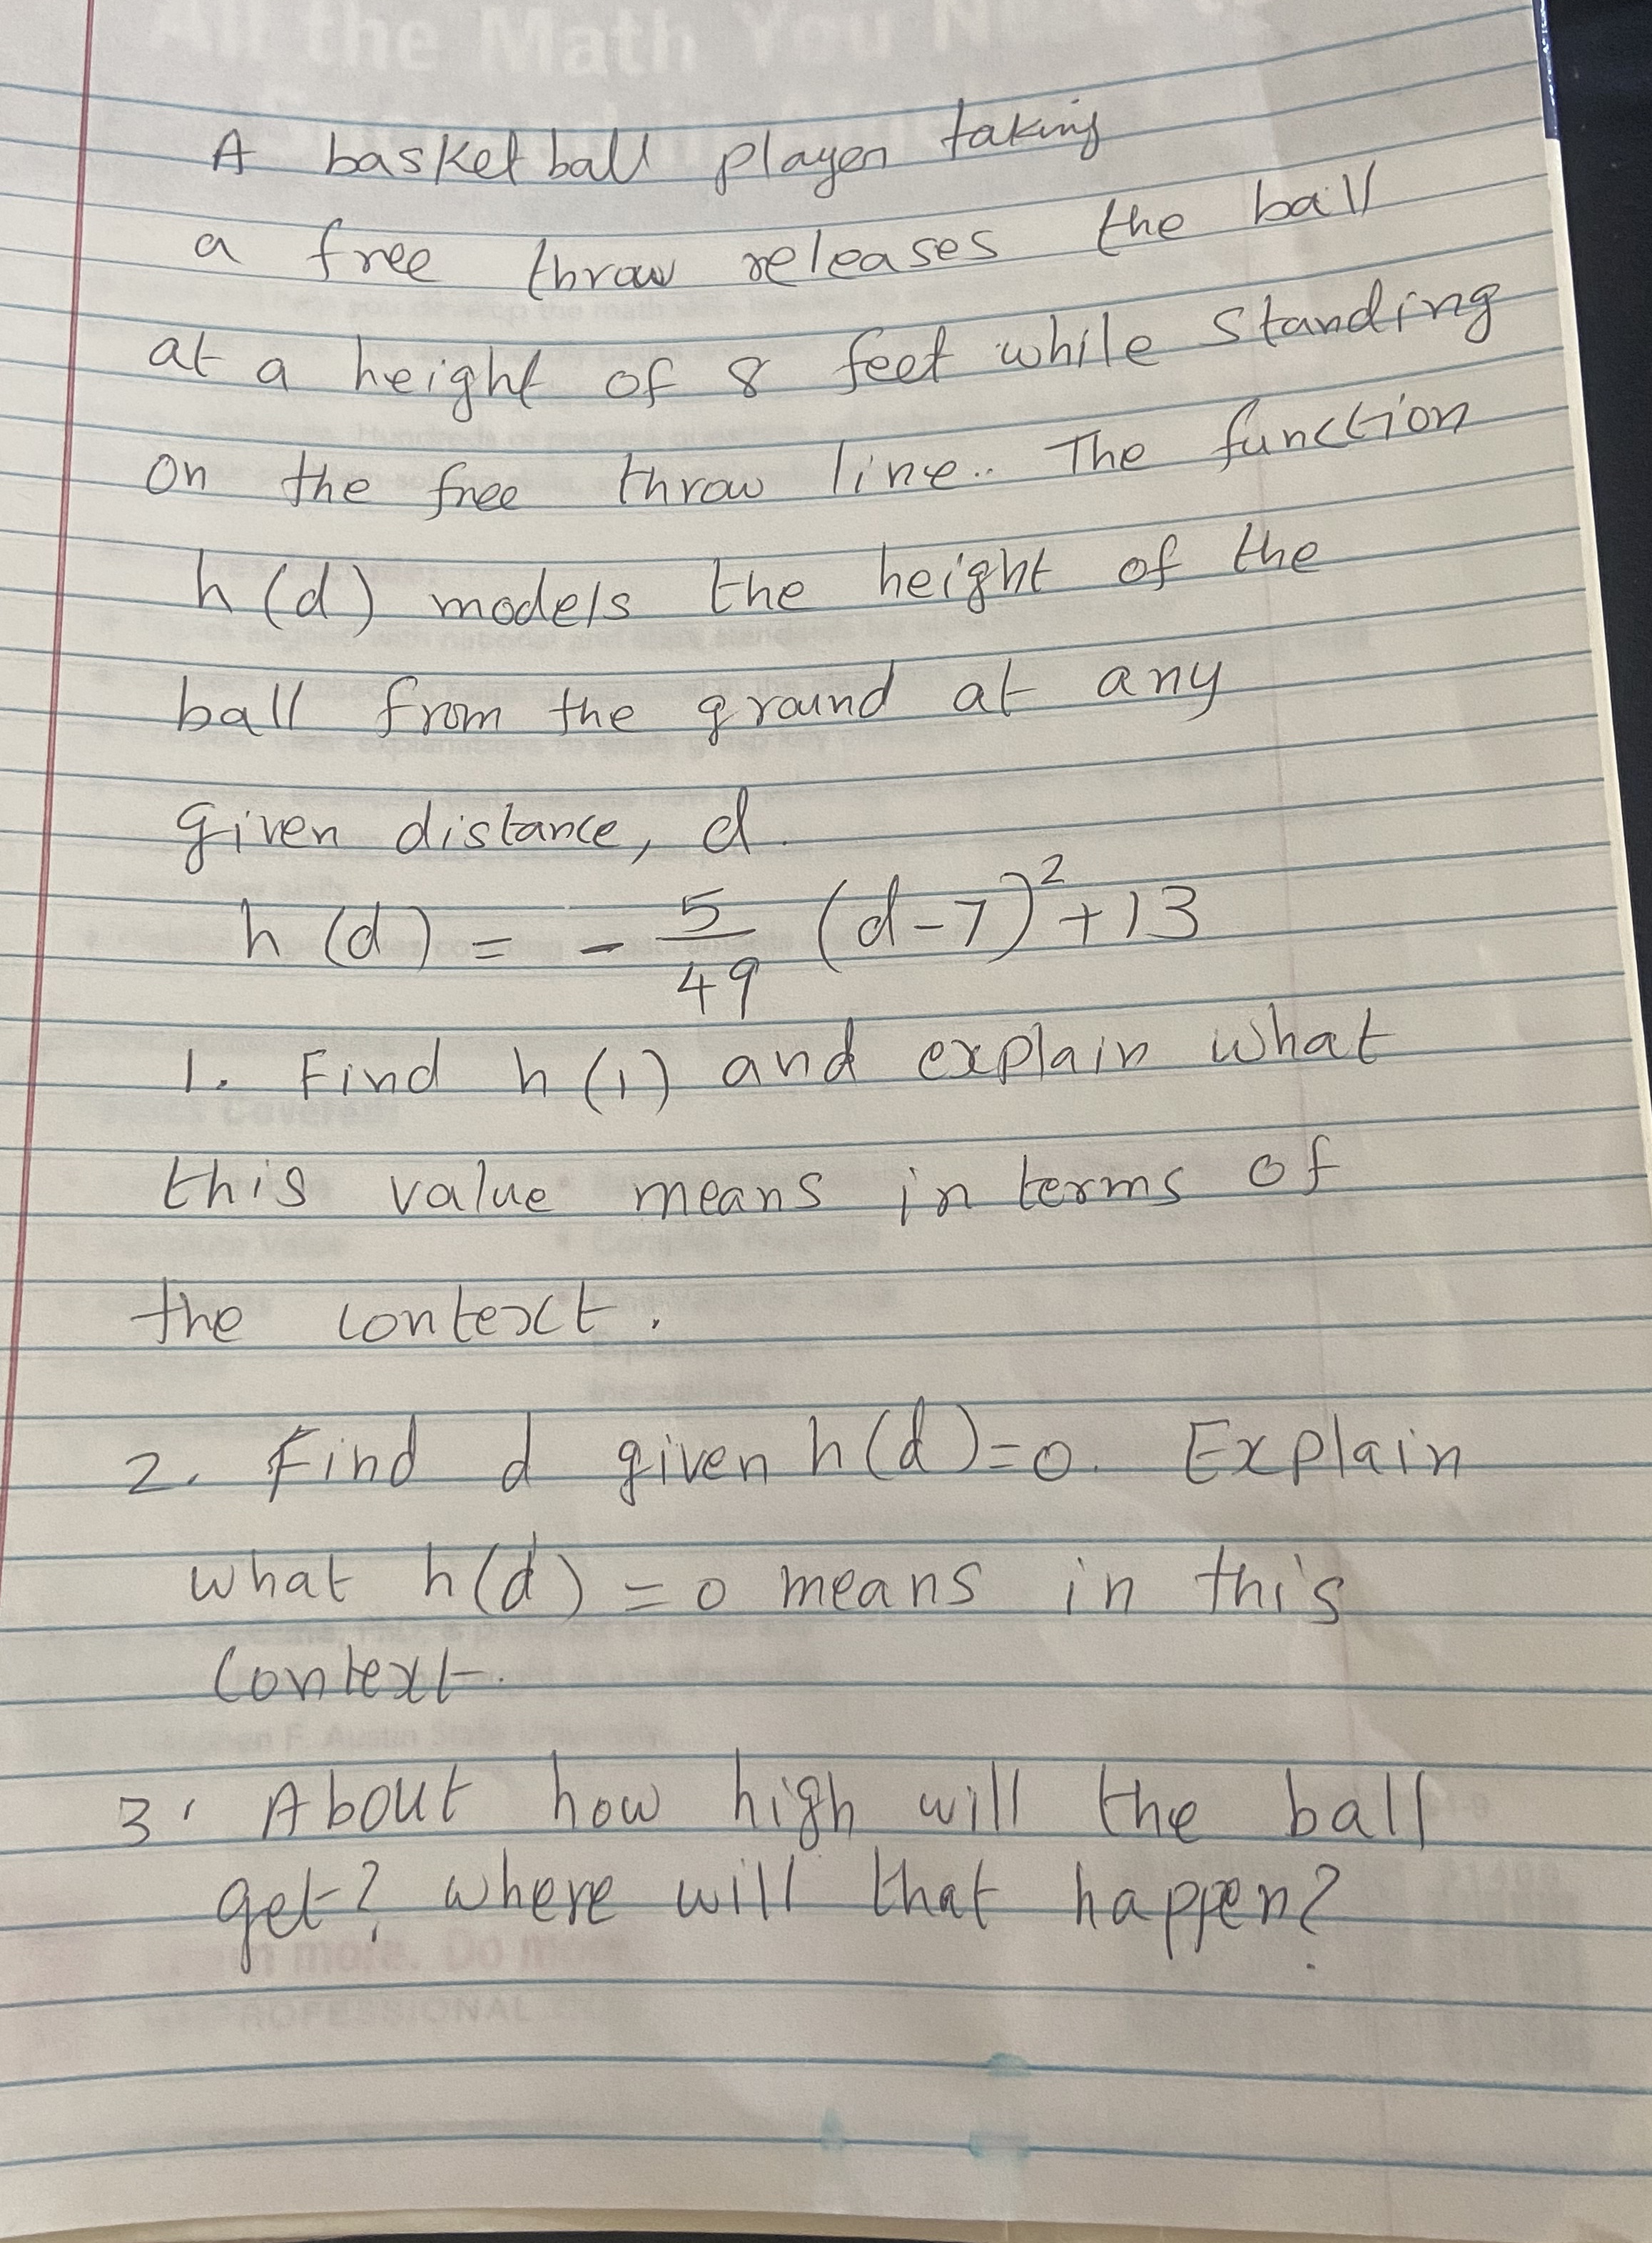 All the Math You N
A basketball player taking
a free throw releases the ball
at a height of 8 feet while standing
on the free throw line.. The function
h (d) models the height of the
ball from the ground at any
given distance, d.
h (d) = - 5/49 (d-7)² + 13
1. Find h (1) and explain what
this value means in terms of
the context.
2. Find d given h(d)=0. Explain
what h(d) = 0 means in this
context.
3. About how high will the ball
get? where will that happen?